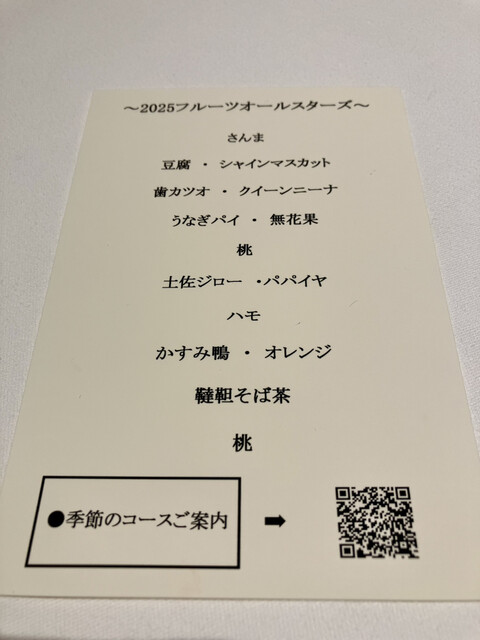 ～2025フルーツオールスターズ～
さんま
豆腐 ・ シャインマスカット
歯カツオ ・ クイーンニーナ
うなぎパイ ・ 無花果
桃
土佐ジロー ・パパイヤ
ハモ
かすみ鴨 ・ オレンジ
韃靼そば茶
桃
●季節のコースご案内 ➡